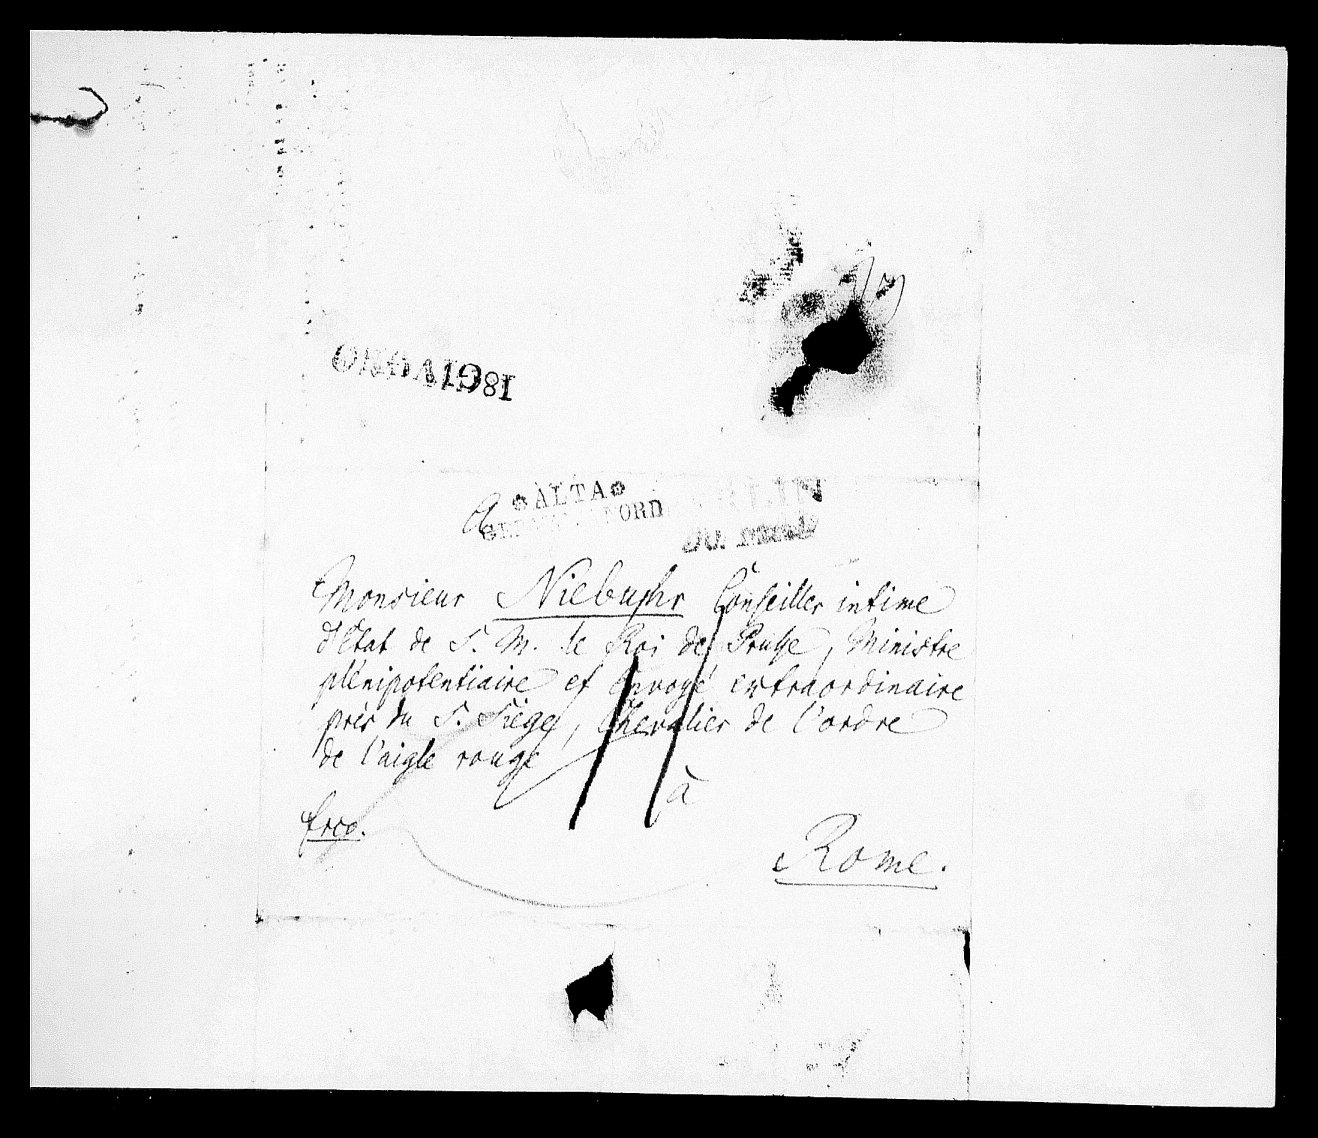 ✽ALTA✽
Monsieur Niebuhr Conseiller intime
d'Etat de S. M. le Roi de Prusse, Ministre
plénipotentiaire et Envoyé extraordinaire
près du S. Siège, Chevalier de l'ordre
de l'aigle rouge
à
frco.
Rome.